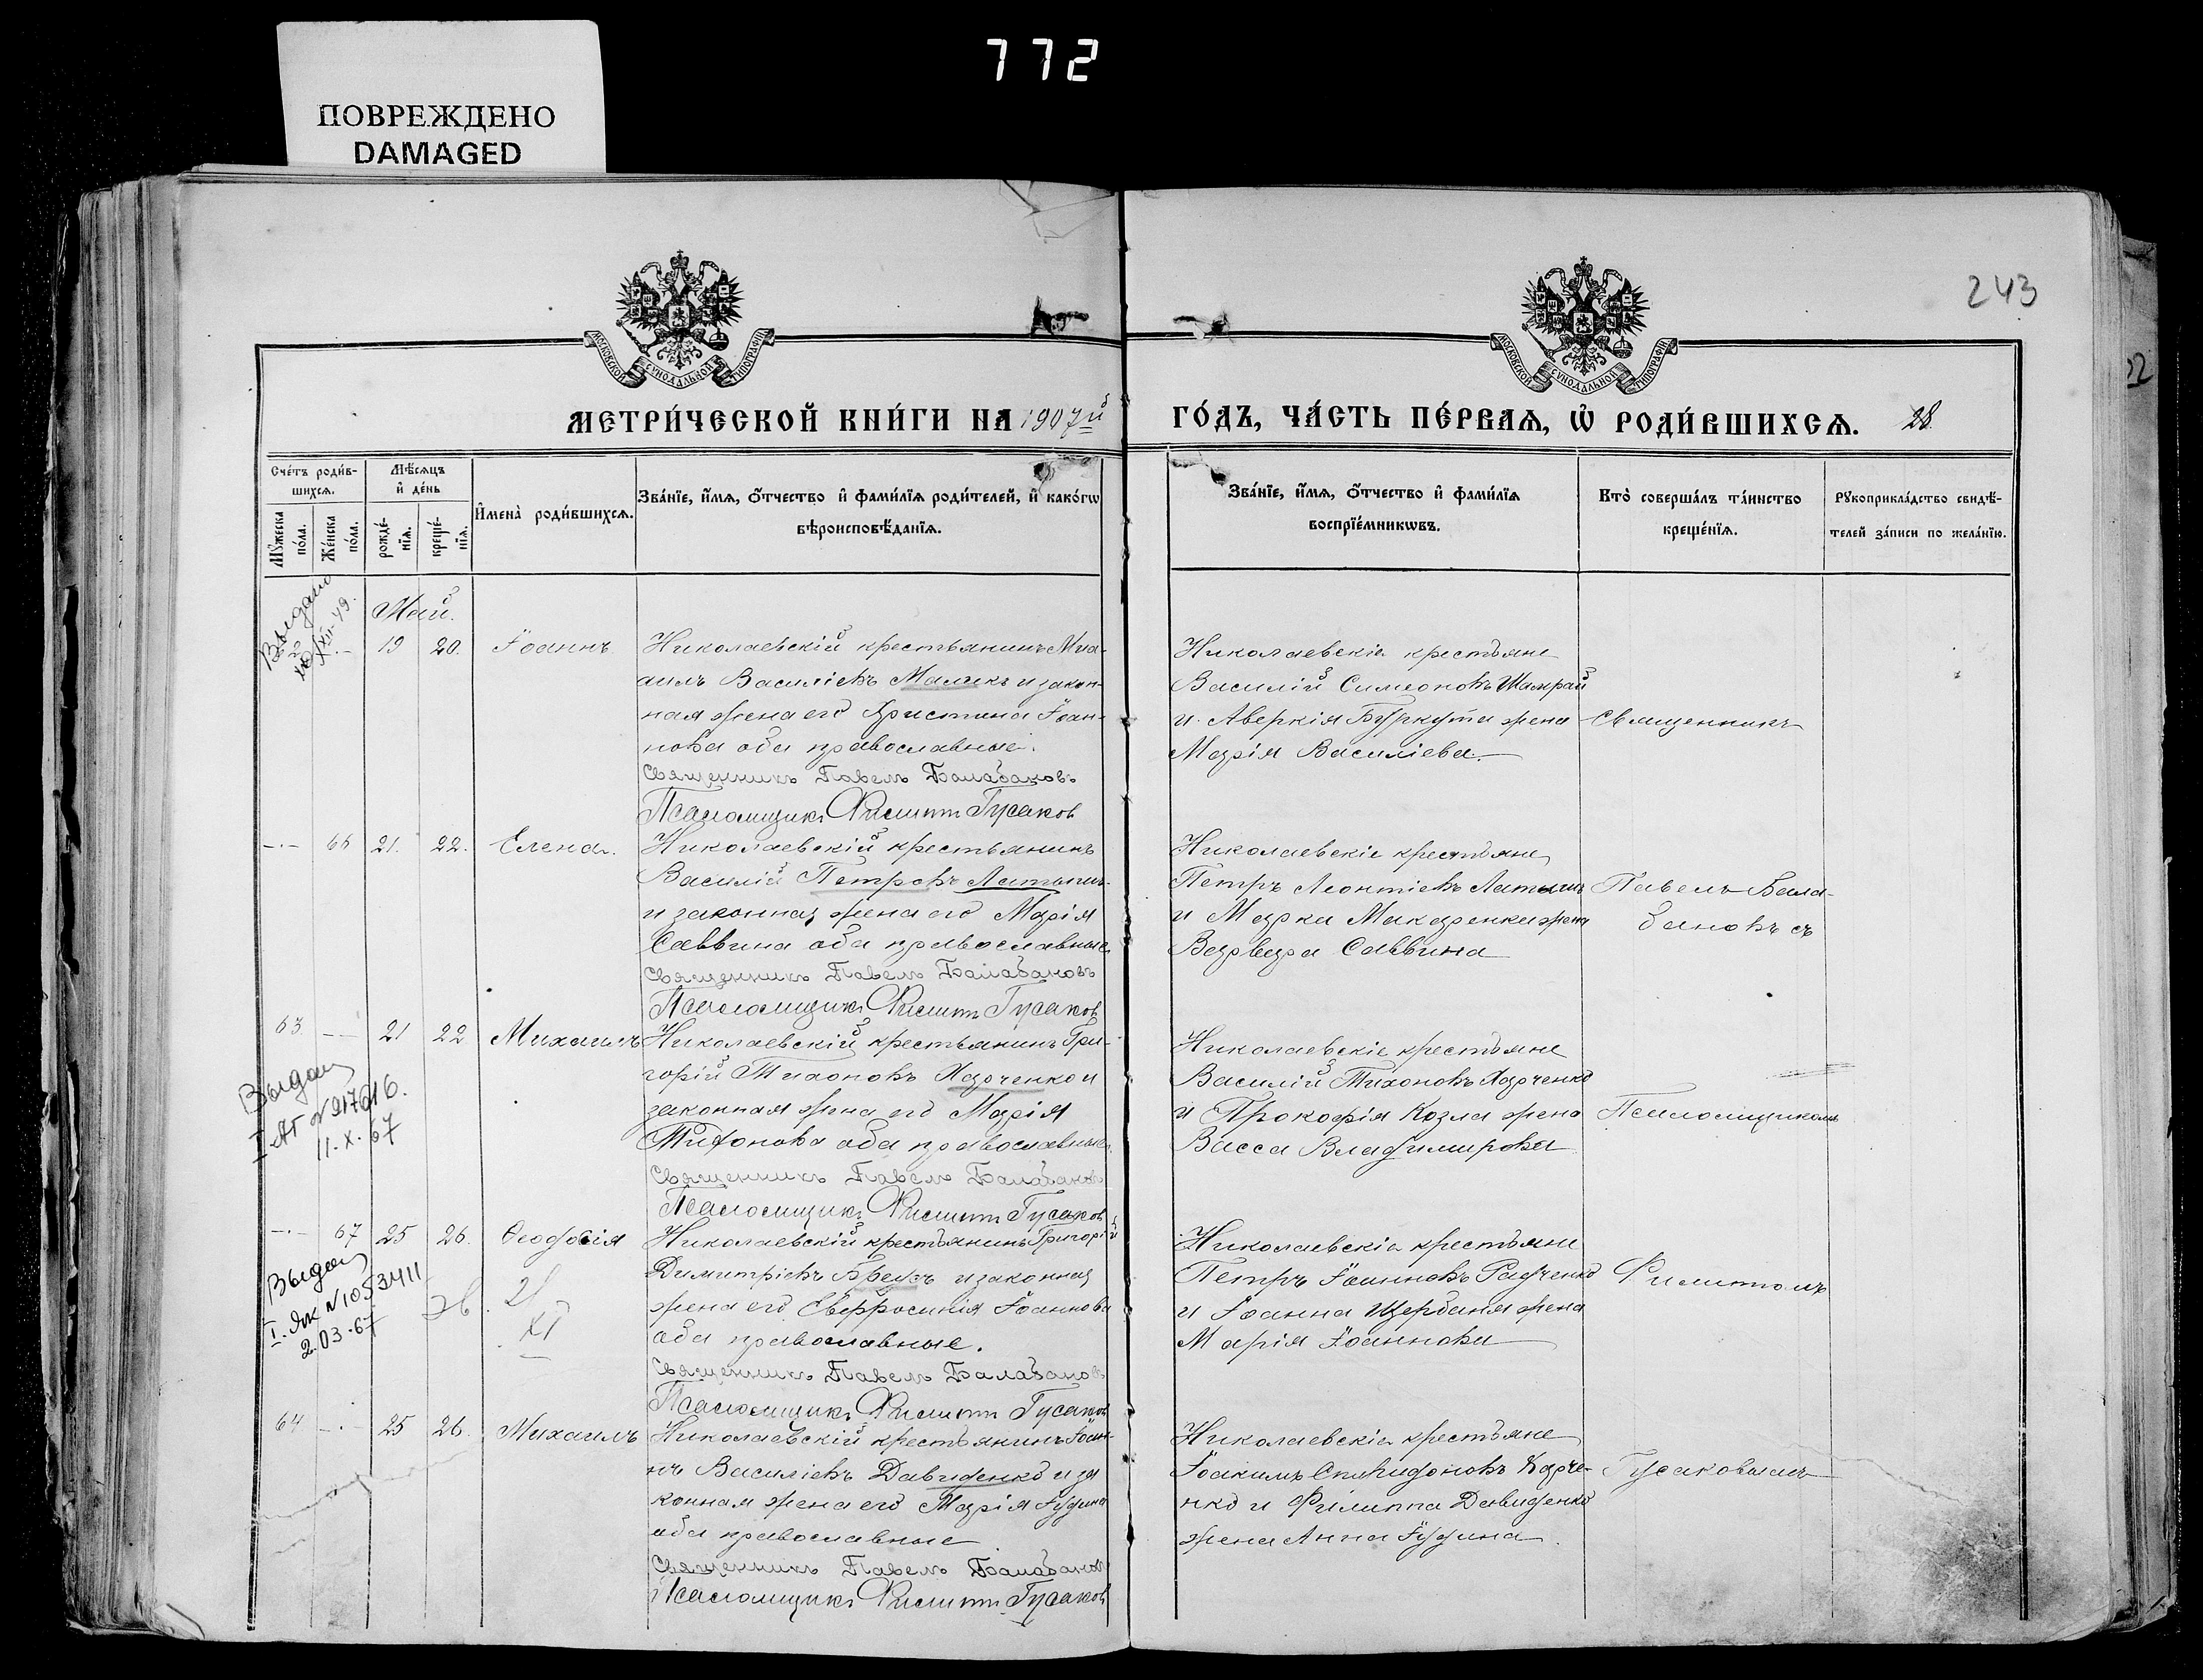 772
ПОВРЕЖДЕНО
DAMAGED
243
22
МОСКОВСКОЙ СѴНОДАЛЬНОЙ ТИПОГРАФІИ
МОСКОВСКОЙ СѴНОДАЛЬНОЙ ТИПОГРАФІИ
МЕТРИ́ЧЕСКОЙ КНИ́ГИ НА 1907й
ГО́ДЪ, ЧА́СТЬ ПЕ́РВАѦ, Ѡ҆ РОДИ́ВШИХСѦ. 28
Сче́тъ роди́в-
шихсѧ.
Мѣ́сѧцъ
и҆ де́нь
Мꙋ́жеска
по́ла.
Же́нска
по́ла.
рожде́-
нїѧ.
креще́-
нїѧ.
И҆мена̀ роди́вшихсѧ.
Зва́нїе, и҆́мѧ, ѻ҆́тчество и҆ фами́лїѧ роди́телей, и҆ како́гѡ
вѣроисповѣ́данїѧ.
Зва́нїе, и҆́мѧ, ѻ҆́тчество и҆ фами́лїѧ
воспрїе́мникѡвъ.
Кто̀ соверша́лъ та́инство
креще́нїѧ.
Рꙋкоприкла́дство свидѣ́-
телей за́писи по жела́нїю.
Май.
Выдано
XII-49.
19 20. Іоаннъ
Николаевскій крестьянинъ Миха-
аилъ Василіевъ Маликъ и закон-
ная жена его Христина Іоан-
нова оба православные.
Священникъ Павелъ Балабановъ
Псаломщикъ Филипп Гусаков
Николаевскіе крестьяне
Василій Симеоновъ Шамрай
и Аверкія Буркута жена
Марія Василіева.
Священникъ
66 21. 22. Елена.
Николаевскій крестьянинъ
Василій Петровъ Латышъ
и законная жена его Марія
Саввина оба православные
Священникъ Павелъ Балабановъ
Псаломщикъ Филипп Гусаков
Николаевскіе крестьяне
Петръ Леонтіевъ Латышъ
и Марка Макаренка жена
Варвара Саввина
Павелъ Бала-
бановъ съ
63. 21 22 Михаилъ
Выдан
11.X.67
Николаевскій крестьянинъ Гри-
горій Тихоновъ Харченко и
законная жена его Марія
Тихонова оба православные.
Священникъ Павелъ Балабановъ
Псаломщикъ Филипп Гусаков
Николаевскіе крестьяне
Василій Тихоновъ Харченко
и Прокофія Козла жена
Васса Владимирова
Псаломщикомъ
67 25 26. Ѳеодосія
Выдан
2.03.67
21
XI
Николаевскій крестьянинъ Григорій
Димитріевъ и законная
жена его Евфросинія Іоаннова
оба православные.
Священникъ Павелъ Балабановъ
Псаломщикъ Филипп Гусаков
Николаевскіе крестьяне
Петръ Іоанновъ Радченко
и Іоанна Щербаня жена
Марія Іоаннова
Филиппомъ
64 25 26. Михаилъ
Николаевскій крестьянинъ Іоан-
нъ Василіевъ Давиденко и за
конная жена его Марія Іудина
оба православные
Священникъ Павелъ Балабановъ
Псаломщикъ Филипп Гусаков
Николаевскіе крестьяне
Іоакимъ Спиридоновъ Харче-
нко и Филиппа Давиденко
жена Анна Іудина.
Гусаковымъ